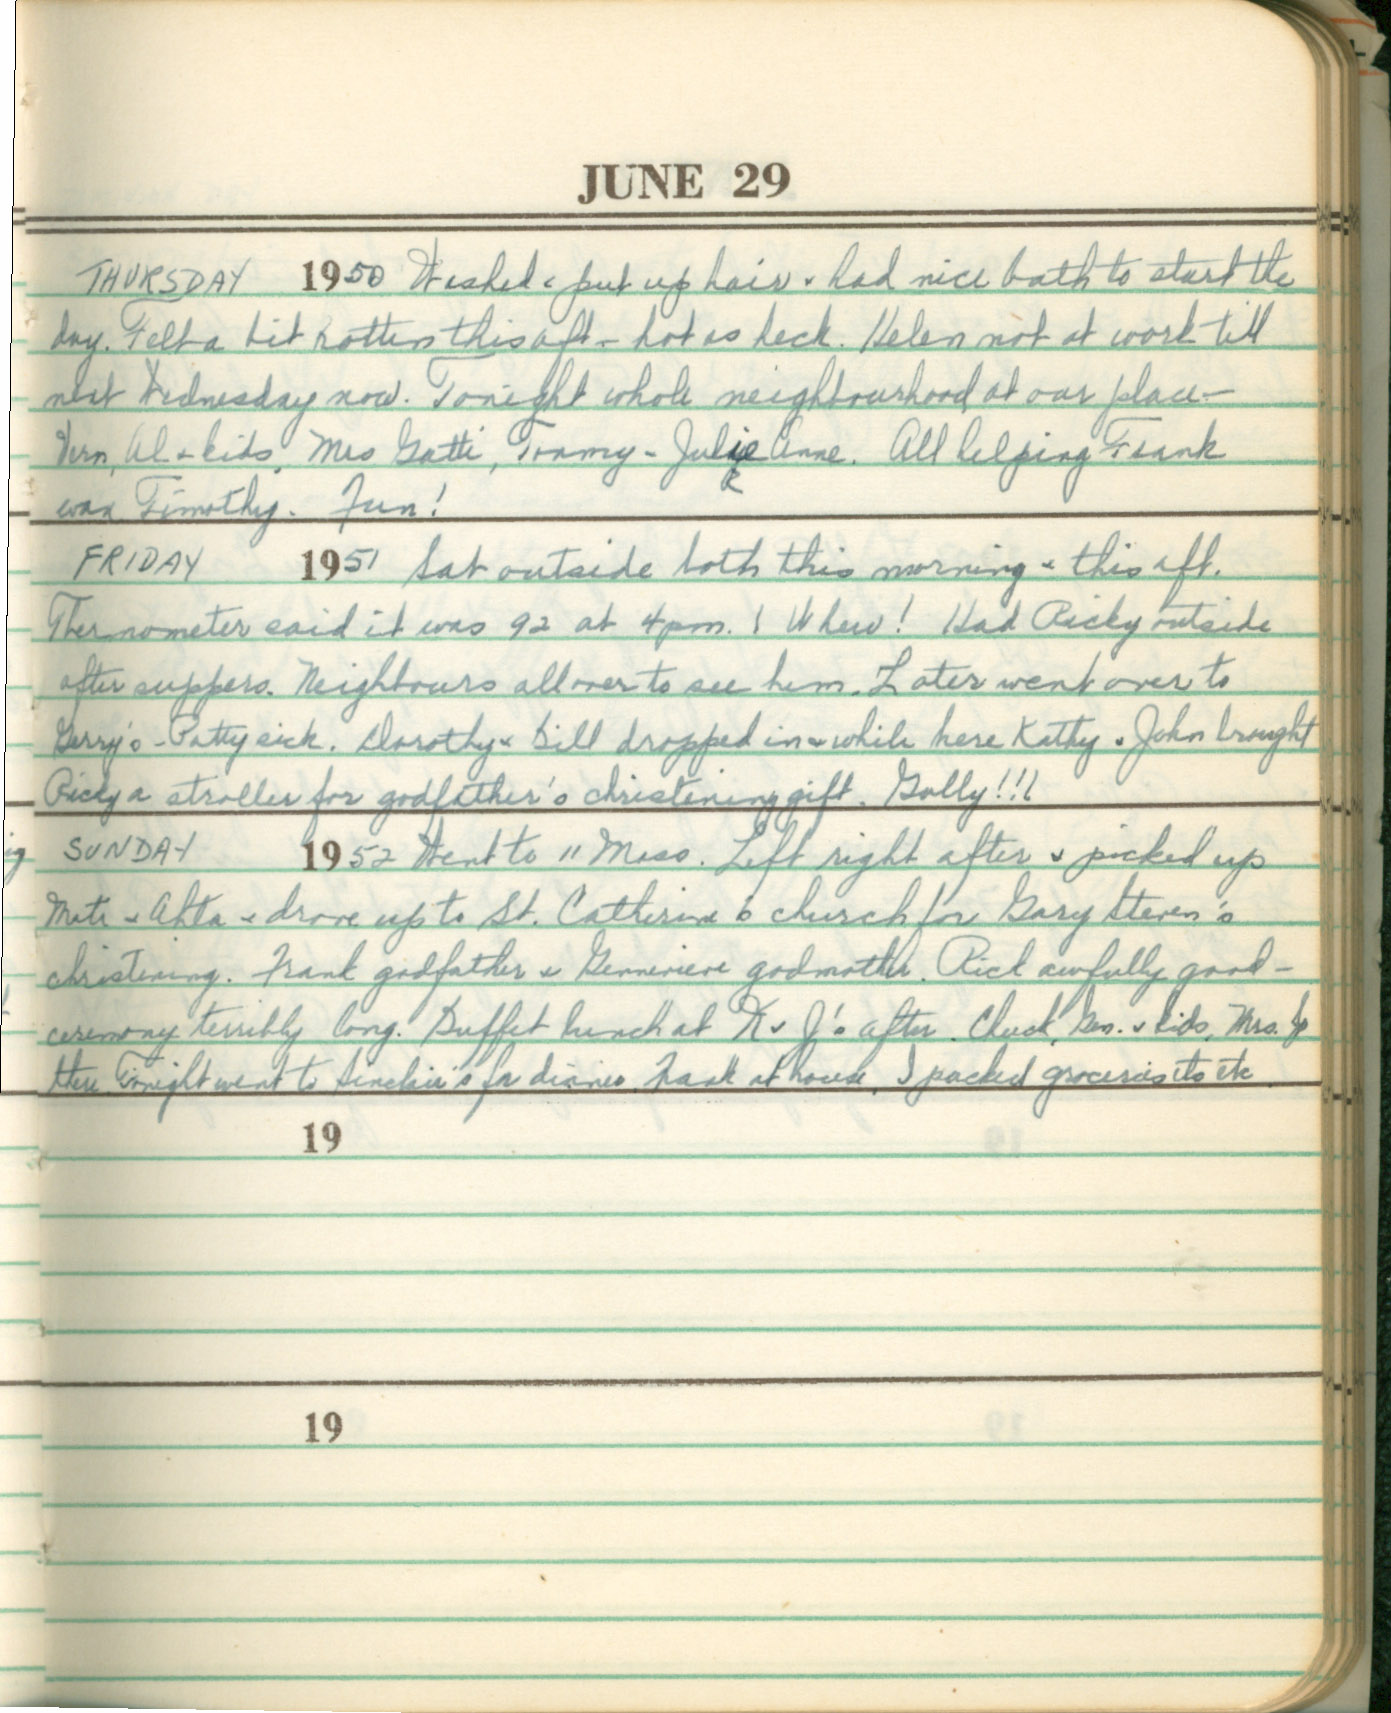 JUNE 29
THURSDAY 1950 Washed & put up hair & had nice bath to start the
day. Felt a bit rotten this aft - hot as heck. Helen not at work till
next Wednesday now. Tonight whole neighbourhood at our place -
Vern, Al & kids, Mrs Gatti, Tommy - Julie Anne. All helping Frank
wax Timothy. Fun!
FRIDAY 1951 Sat outside both this morning & this aft.
Thermometer said it was 92 at 4 pm. ! Whew! Had Ricky outside
after suppers. Neighbours all over to see him. Later went over to
Gerry's - Patty sick. Dorothy & Bill dropped in & while here Kathy & John brought
Ricky a stroller for godfather's christening gift. Golly!!!
SUNDAY 1952 Went to 11 Mass. Left right after & picked up
& drove up to St. Catherine's church for Gary Steven's
christening. Frank godfather & Gennevieve godmother. Rick awfully good -
ceremony terribly long. Buffet lunch at K & J's after. Chuck, Gen. & kids, Mrs.
there. Tonight went to Sinclair's for dinner. Frank at house. I packed groceries etc
19
19